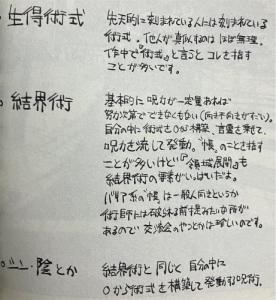 ・生得術式
先天的に刻まれている人には刻まれている
術式。他人が真似するのはほぼ無理。
作中で『術式』と言うとコレを指す
ことが多いです。
・結界術
基本的に呪力が一定量あれば
努力次第でできなくもない(向き不向きがすごい)。
自分の中に術式を0から構築、言霊を乗せて、
呪力を流して発動。"帳"のことを指す
ことが多いけど『領域展開』も
結界術の要素がいっぱいだよ。
バリア系の"帳"は一般人向きというか
術師には破られる前提みたいな所が
あるので交流会のやつとかは珍しいのです。
・シン・陰とか
結界術と同じく自分の中に
0から術式を構築して発動する呪術。